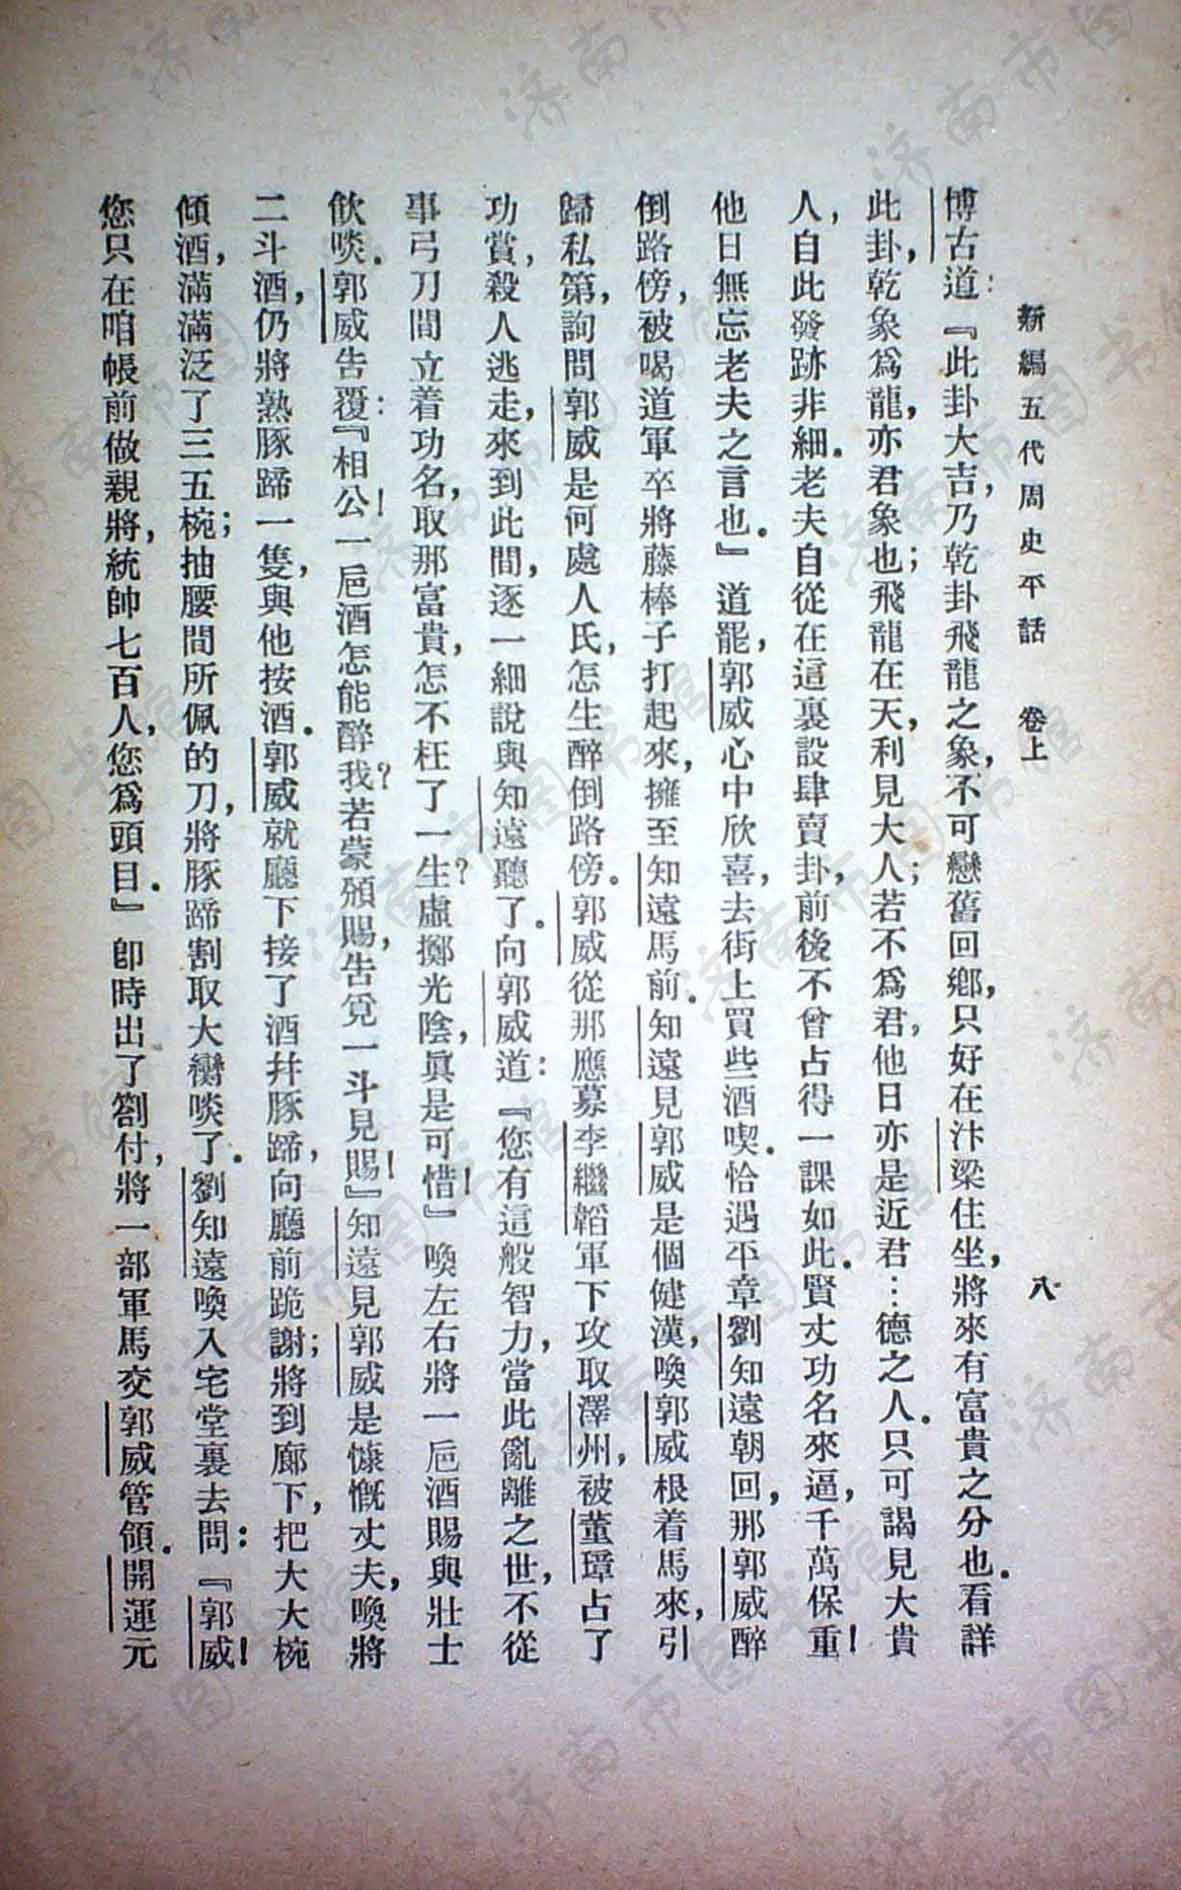 新編五代周史平話 卷上 八
博古道：『此卦大吉，乃乾卦飛龍之象，不可戀舊回鄉，只好在汴梁住坐，將來有富貴之分也。看詳
此卦，乾象爲龍，亦君象也；飛龍在天，利見大人；若不爲君，他日亦是近君…德之人。只可謁見大貴
人，自此發跡非細。老夫自從在這裏設肆賣卦，前後不曾占得一課如此。賢丈功名來逼，千萬保重！
他日無忘老夫之言也。』道罷，郭威心中欣喜，去街上買些酒喫。恰遇平章劉知遠朝回，那郭威醉
倒路傍，被喝道軍卒將藤棒子打起來，擁至知遠馬前。知遠見郭威是個健漢，喚郭威根着馬來，引
歸私第，詢問郭威是何處人氏，怎生醉倒路傍。郭威從那應募李繼韜軍下攻取澤州，被董璋占了
功賞，殺人逃走，來到此間，逐一細說與知遠聽了。向郭威道：『您有這般智力，當此亂離之世，不從
事弓刀間立着功名，取那富貴，怎不枉了一生？虛擲光陰，眞是可惜！』喚左右將一巵酒賜與壯士
飮啖。郭威告覆：『相公！一巵酒怎能醉我？若蒙頒賜，告覓一斗見賜！』知遠見郭威是慷慨丈夫，喚將
二斗酒，仍將熟豚蹄一隻，與他按酒。郭威就廳下接了酒幷豚蹄，向廳前跪謝；將到廊下，把大大椀
傾酒，滿滿泛了三五椀；抽腰間所佩的刀，將豚蹄割取大臠啖了。劉知遠喚入宅堂裏去問：『郭威！
您只在咱帳前做親將，統帥七百人，您爲頭目。』卽時出了劄付，將一部軍馬交郭威管領。開運元
济南市图书馆